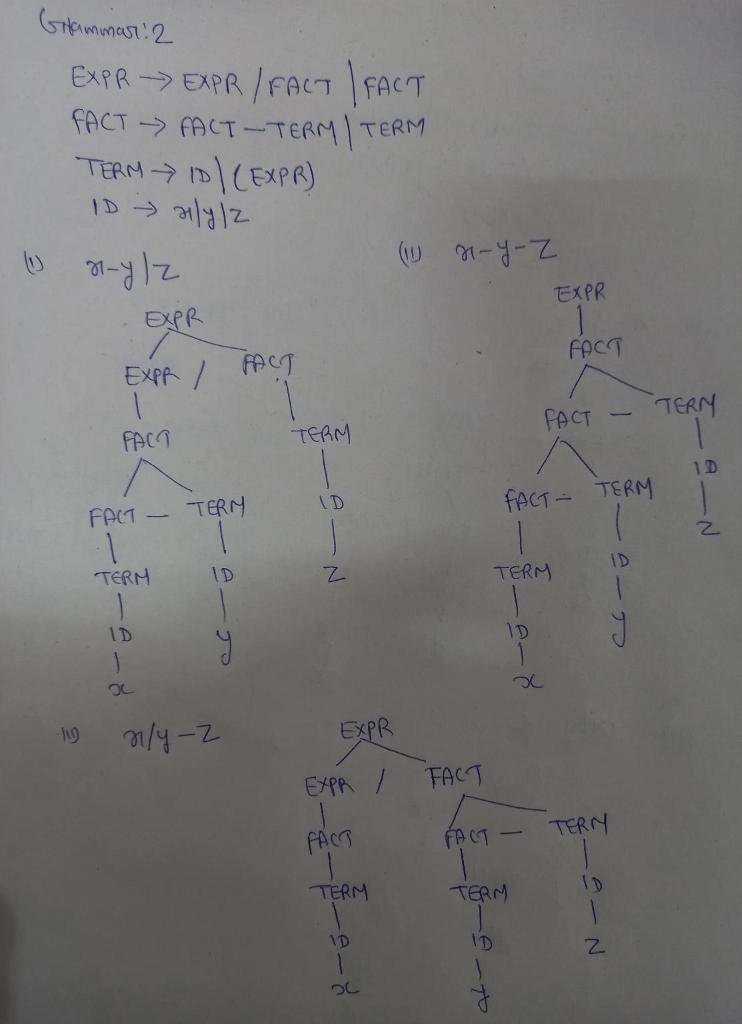 Grammar:2
EXPR → EXPR / FACT | FACT
FACT → FACT – TERM | TERM
TERM → ID | (EXPR)
ID → x|y|z
(i) x-y|z
EXPR
EXPR / FACT
FACT TERM
FACT – TERM ID
TERM ID z
ID y
x
(ii) x-y-z
EXPR
FACT
FACT – TERM
FACT – TERM ID
TERM ID z
ID y
x
iii) x/y-z
EXPR
EXPR / FACT
FACT FACT – TERM
TERM TERM ID
ID ID z
x y